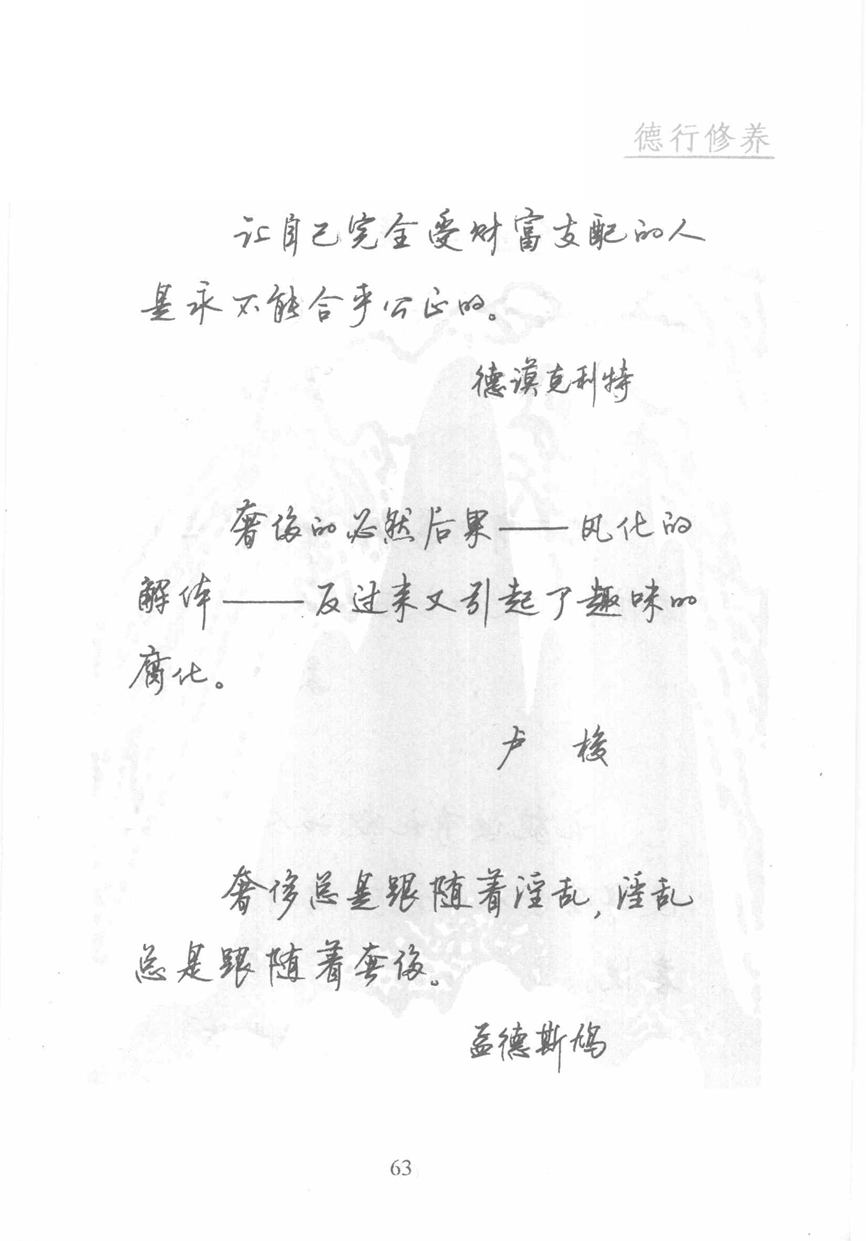 德行修养
让自己完全受财富支配的人
是永不能合乎公正的。
德谟克利特
奢侈的必然后果——风化的
解体——反过来又引起了趣味的
腐化。
卢 梭
奢侈总是跟随着淫乱,淫乱
总是跟随着奢侈。
孟德斯鸠
63